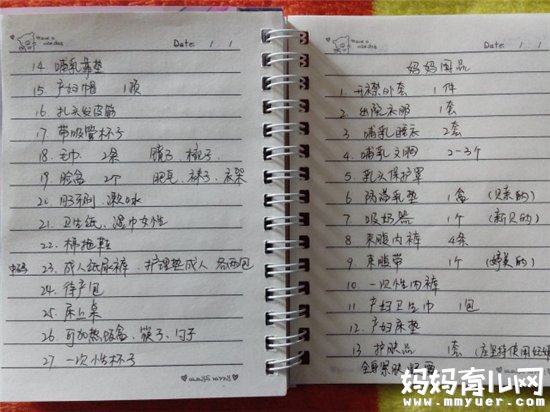 Date: / /
14. 哺乳靠垫
15. 产妇帽 1顶
16. 扎头发皮筋
17. 带吸管杯子
18. 毛巾 2条 镜子、梳子、
19. 脸盆 2个 肥皂、袜子、衣架
20. 月牙刷、漱口水
21. 卫生纸、湿巾女性
22. 棉拖鞋
中码 23. 成人纸尿裤、护理垫成人 各两包
24. 待产包
25. 床上桌
26. 可加热饭盒、筷子、勺子
27. 一次性杯子
Date: / /
妈妈用品
1. 开襟外套 1件
2. 出院衣服 1套
3. 哺乳睡衣 2套
4. 哺乳文胸 2-3个
5. 乳头保护罩
6. 防溢乳垫 1盒 (贝亲的)
7. 吸奶器 1个 (新贝的)
8. 束腹内裤 4条
9. 束腹带 1个 (婷美的)
10. 一次性内裤
11. 产妇卫生巾 1包
12. 产妇床垫
13. 护肤品 1套 (应坚持使用妊娠
妈妈育儿网
www.mmyuer.com